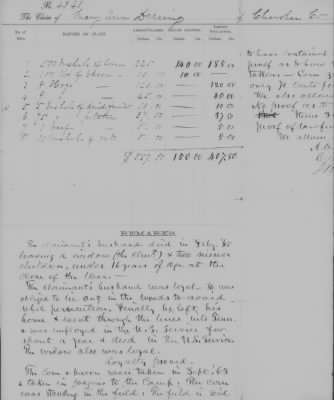 No. 4346
The Claim of Mary Ann Deering of Cherokee Co.
No. of Item. NATURE OF CLAIM. AMOUNT CLAIMED. AMOUNT ALLOWED. AMOUNT DISALLOWED.
Dollars Cts. Dollars Cts. Dollars Cts.
1 500 bushels of Corn 325 140 00 185 00
2 100 lbs of Bacon 10 00 10 00
3 Hogs 120 00 120 00
4
5 5 bushels of dried fruit 10 00 10 00
6 75 " potatoes 37 50 37
7 1 5 00 5 00
8 10 bushels of oats 5 00 5 00
$ 557.50 150.00 407.50
to have contained
proof as to
taken — Corn
only 70 Cents for
We also allow
No proof as to
Items 3
proof of
We allow
REMARKS.
The claimant's husband died in Feby. 65
leaving a widow (the Clmt) & two minor
children, under 16 years of age at the
close of the War. —
The claimant's husband was loyal. He was
obliged to lie out in the woods to avoid
rebel persecution. Finally he left his
home & went through the lines into Tenn.
& was employed in the U.S. Service for
about a year & died in the U.S. Service.
The widow also was loyal.
Loyalty proved.
The Corn & bacon were taken in Sept. '63
& taken in wagons to the Camp. The Corn
was standing in the field. The field is said